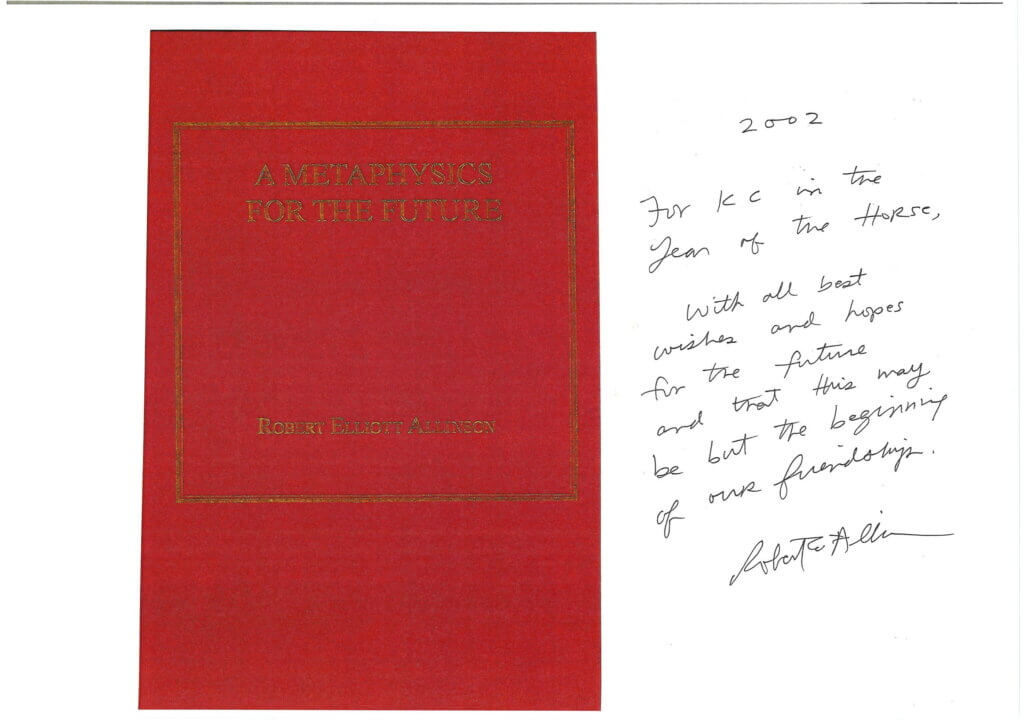 A METAPHYSICS
FOR THE FUTURE
ROBERT ELLIOTT ALLINSON
2002
For KC in the
Year of the Horse,
With all best
wishes and hopes
for the future
and that this may
be but the beginning
of our friendship.
Robert E Allinson